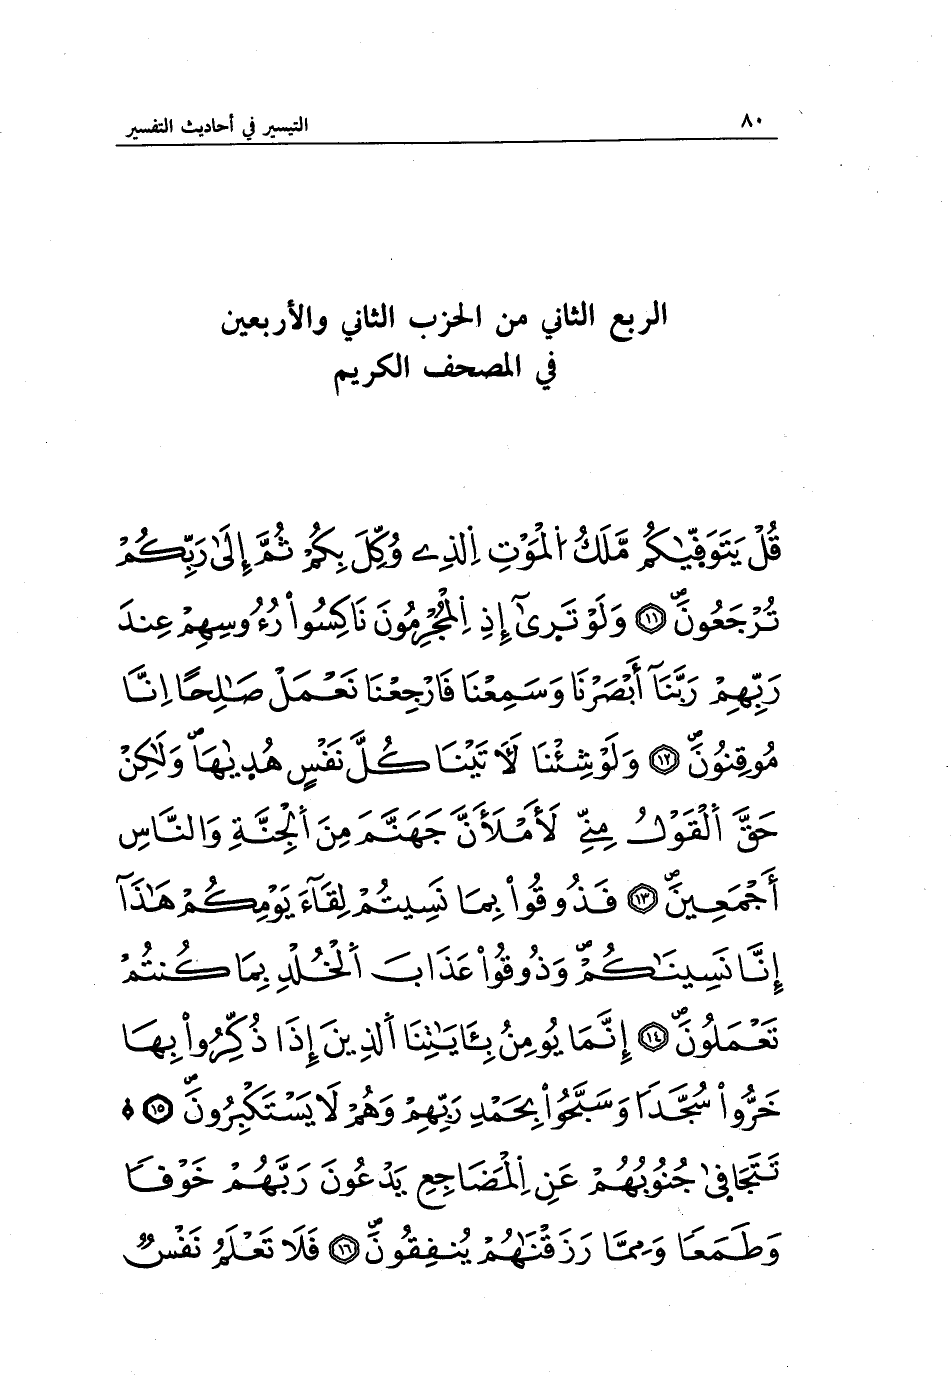 ٨٠
التيسير في أحاديث التفسير
الربع الثاني من الحزب الثاني والأربعين
في المصحف الكريم
قُلْ يَتَوَفّىٰكُم مَّلَكُ اُ۬لْمَوْتِ اِ۬لذِے وُكِّلَ بِكُمْ ثُمَّ إِلَىٰ رَبِّكُمْ
تُرْجَعُونَۖ ١١ وَلَوْ تَرىٰٓ إِذِ اِ۬لْمُجْرِمُونَ نَاكِسُواْ رُءُوسِهِمْ عِندَ
رَبِّهِمْ رَبَّنَآ أَبْصَرْنَا وَسَمِعْنَا فَارْجِعْنَا نَعْمَلْ صَٰلِحًا اِنَّا
مُوقِنُونَۖ ١٢ وَلَوْ شِئْنَا لَأٓتَيْنَا كُلَّ نَفْسٍ هُدىٰهَاۖ وَلَٰكِنْ
حَقَّ اَ۬لْقَوْلُ مِنِّے لَأَمْلَأَنَّ جَهَنَّمَ مِنَ اَ۬لْجِنَّةِ وَالنَّاسِ
أَجْمَعِينَۖ ١٣ فَذُوقُواْ بِمَا نَسِيتُمْ لِقَآءَ يَوْمِكُمْ هَٰذَآ
إِنَّا نَسِينَٰكُمْۖ وَذُوقُواْ عَذَابَ اَ۬لْخُلْدِ بِمَا كُنتُمْ
تَعْمَلُونَۖ ١٤ إِنَّمَا يُومِنُ بِـَٔايَٰتِنَا اَ۬لذِينَ إِذَا ذُكِّرُواْ بِهَا
خَرُّواْ سُجَّداٗ وَسَبَّحُواْ بِحَمْدِ رَبِّهِمْ وَهُمْ لَا يَسْتَكْبِرُونَۖ ١٥ ۞
تَتَجَافىٰ جُنُوبُهُمْ عَنِ اِ۬لْمَضَاجِعِ يَدْعُونَ رَبَّهُمْ خَوْفاٗ
وَطَمَعاٗ وَمِمَّا رَزَقْنَٰهُمْ يُنفِقُونَۖ ١٦ فَلَا تَعْلَمُ نَفْسٞ